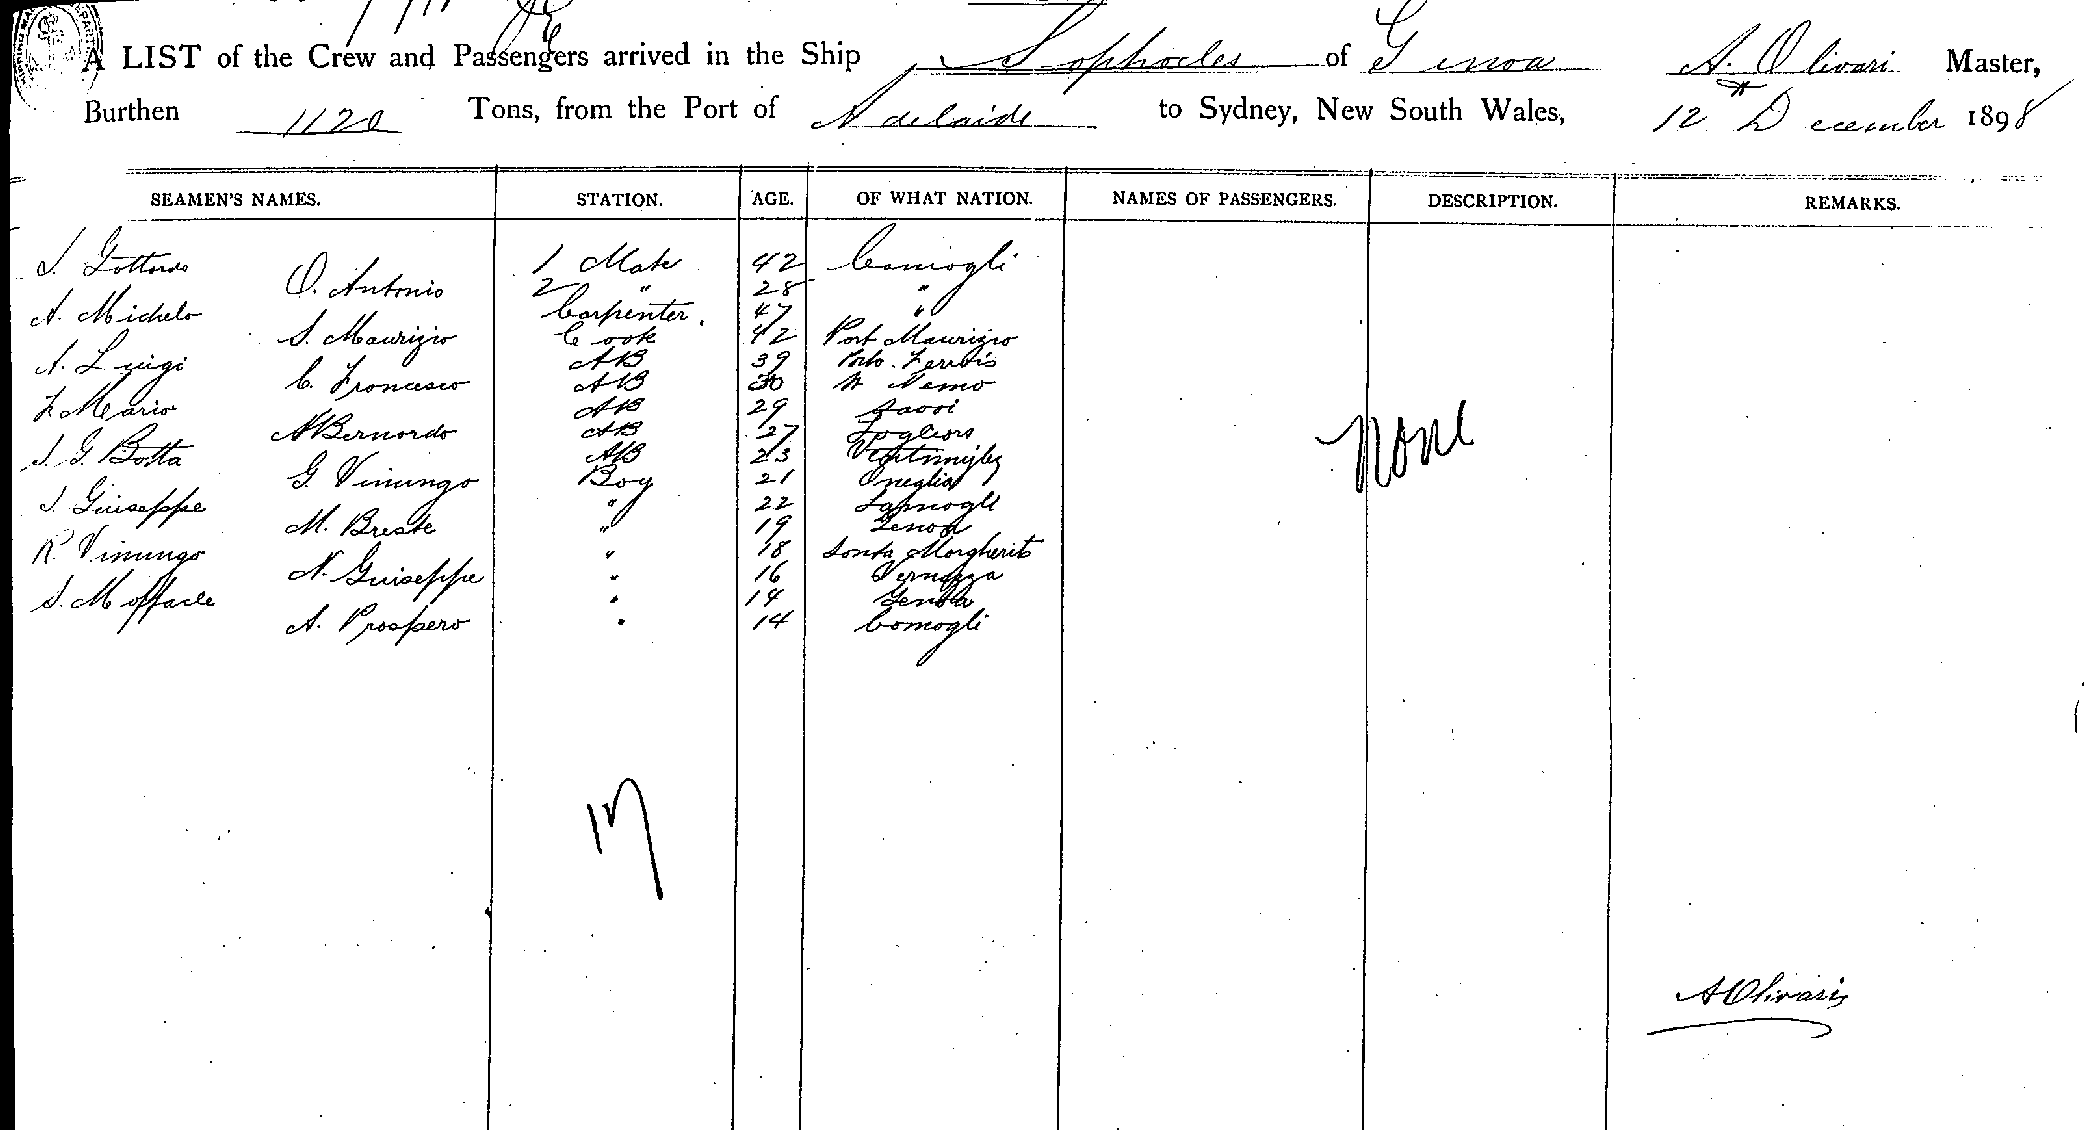 A LIST of the Crew and Passengers arrived in the Ship Sophocles of Genoa A. Olivari Master,
Burthen 1120 Tons, from the Port of Adelaide to Sydney, New South Wales, 12 December 1898
SEAMEN'S NAMES. STATION. AGE. OF WHAT NATION. NAMES OF PASSENGERS. DESCRIPTION. REMARKS.
S. Gottardo 1 Mate 42 Camogli
O. Antonio 2 " 28 "
A. Michelo Carpenter. 47 "
S. Maurizio Cook 42 Port Maurizio
A. Luigi AB 39 Porto
C. Francesco AB 30 Nemo
F. Mario AB 29
A Bernardo AB 27
S. G. Botta AB 23
G. Vimungo Boy 21 Oneglia
S. Giuseppe " 22
M. Breste " 19 Genoa
R. Vimungo " 18 Santa Margherita
N. Guiseppe " 16 Vernazza
S. 14 Genoa
A. Prospero " 14 Camogli
None
17
A Olivari